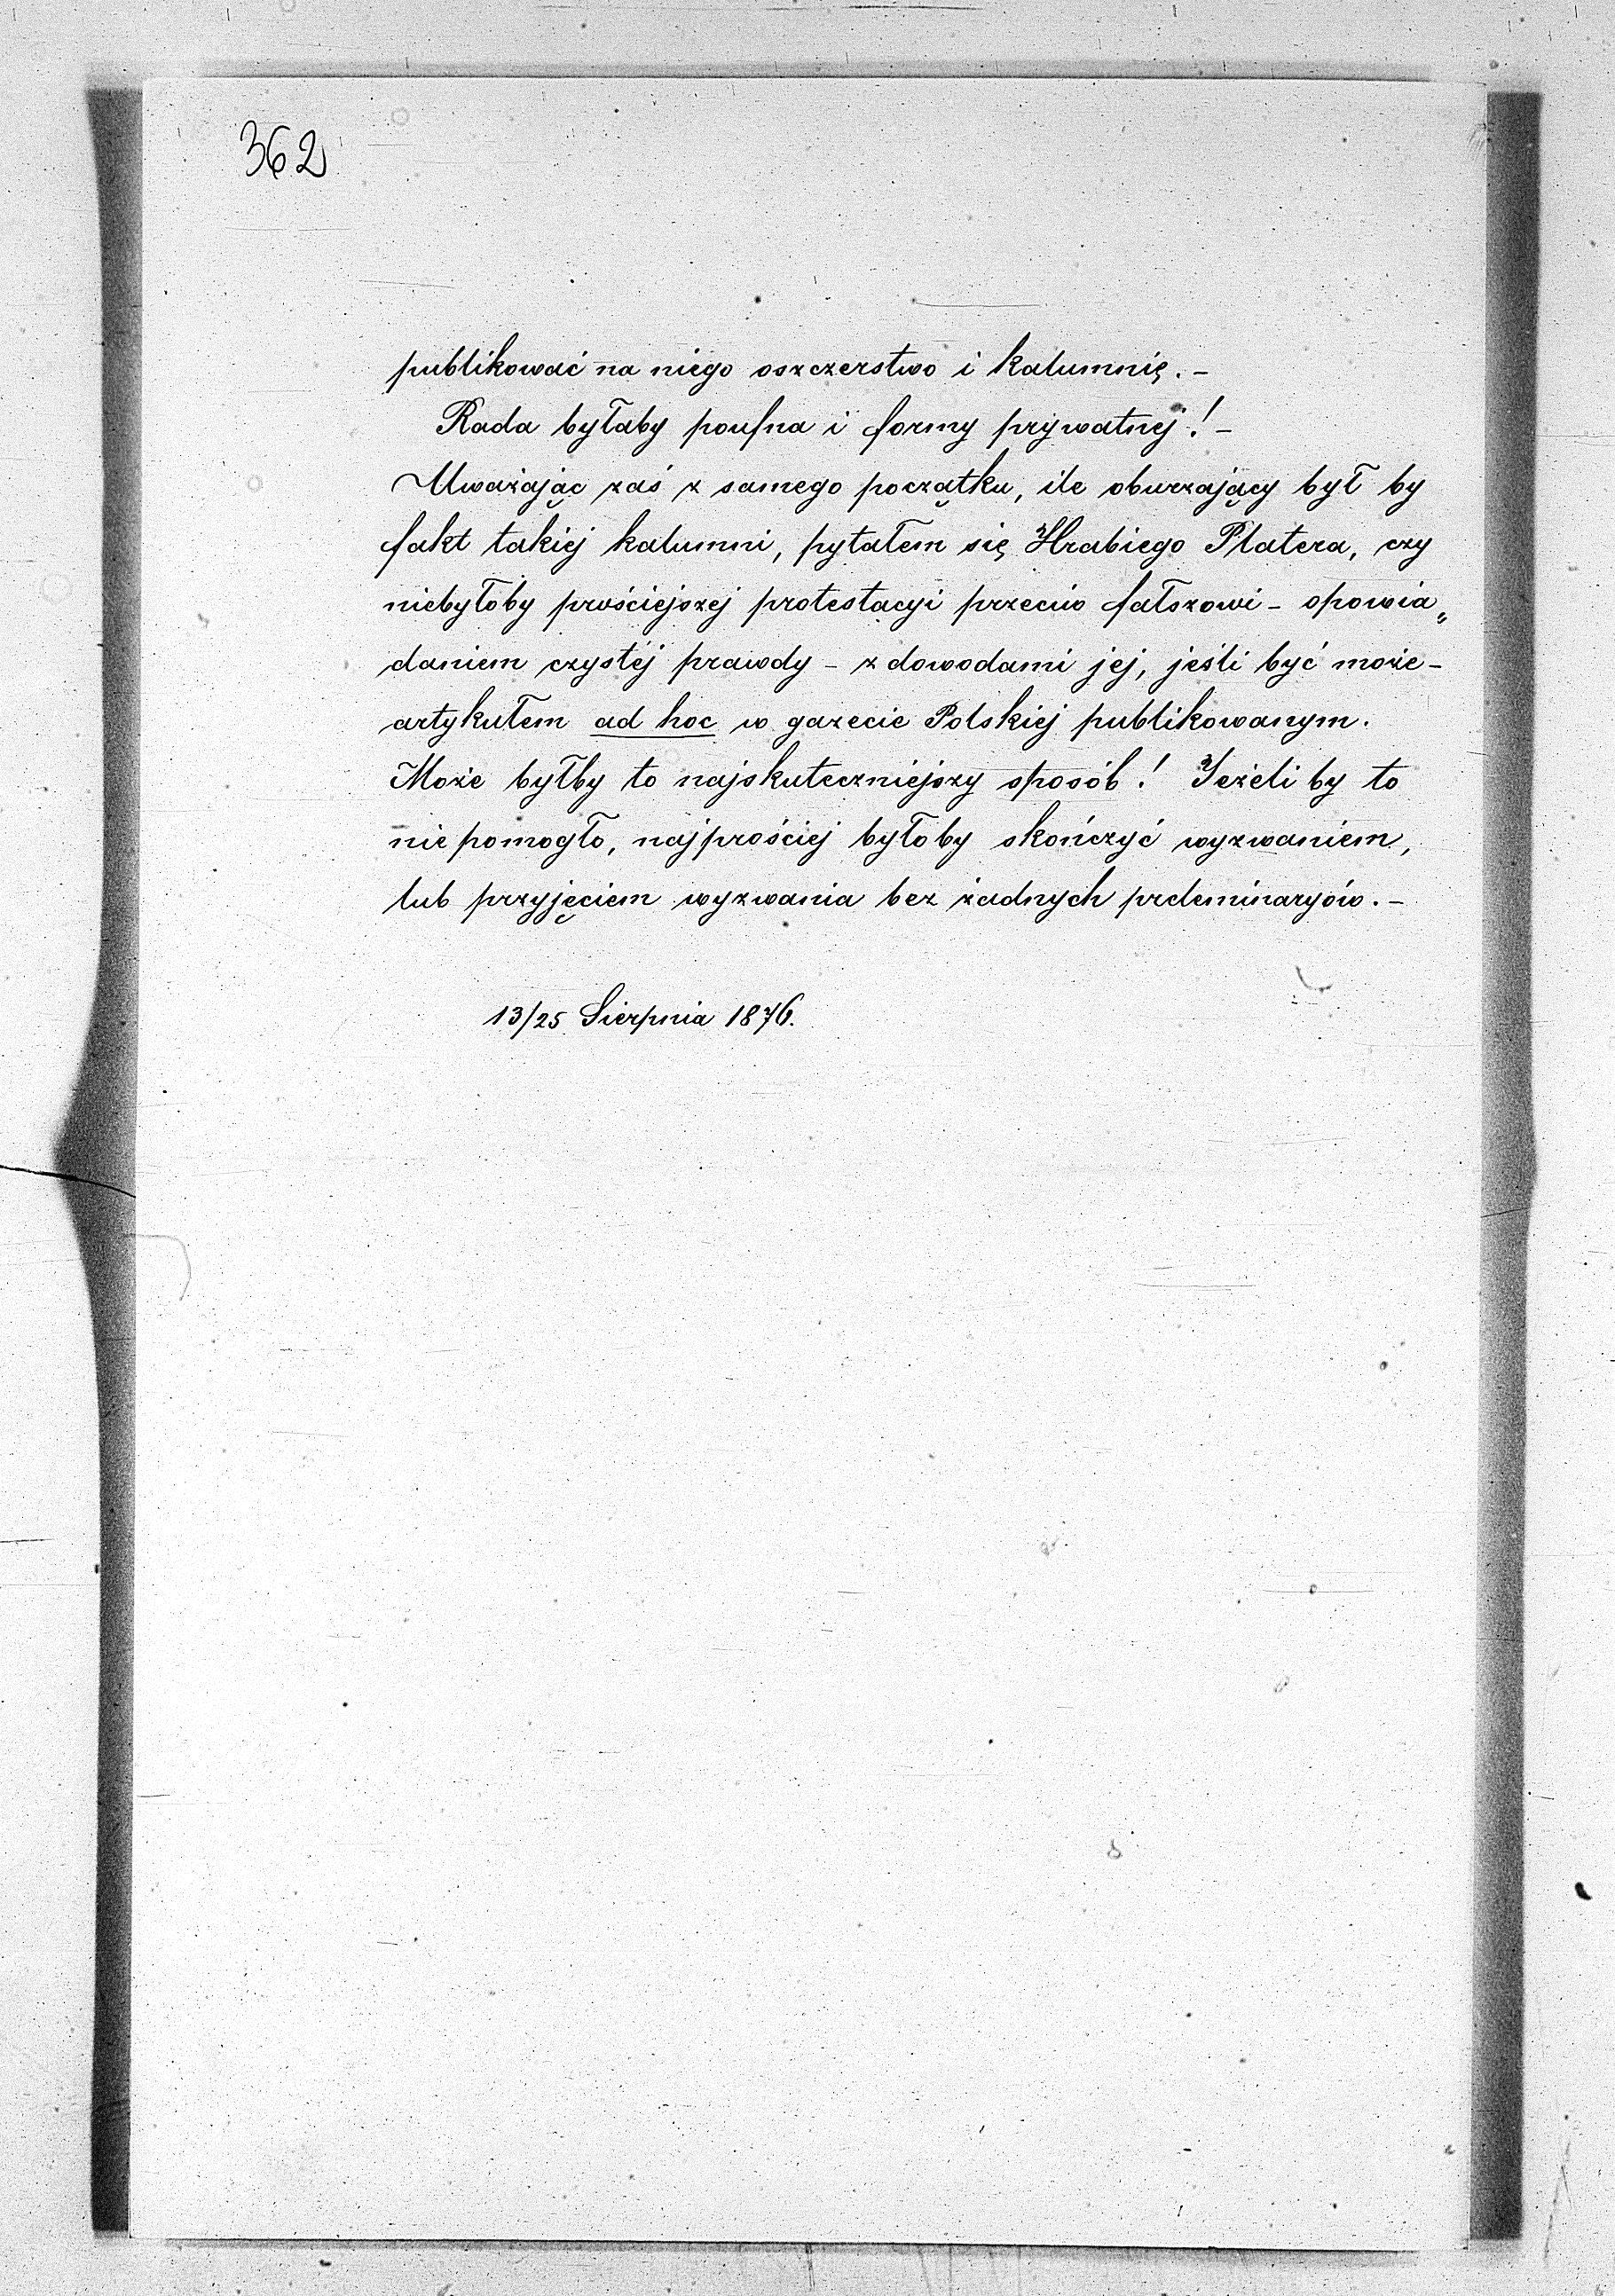 362
publikować na niego oszczerstwo i kalumnię. –
Rada byłaby poufna i formy prywatnej! –
Uważając zaś z samego początku, ile oburzający był by
fakt takiej kalumni, pytałem się Hrabiego Platera, czy
niebyłoby prościejszej protestacyi przeciw fałszowi – opowia„
daniem czystéj prawdy – z dowodami jej, jeśli być może –
artykułem ad hoc w gazecie Polskiej publikowanym.
Może byłby to najskuteczniejszy sposób! Jeżeli by to
nie pomogło, najprościej byłoby skończyć wyzwaniem,
lub przyjęciem wyzwania bez żadnych preleminaryów. –
13/25 Sierpnia 1876.